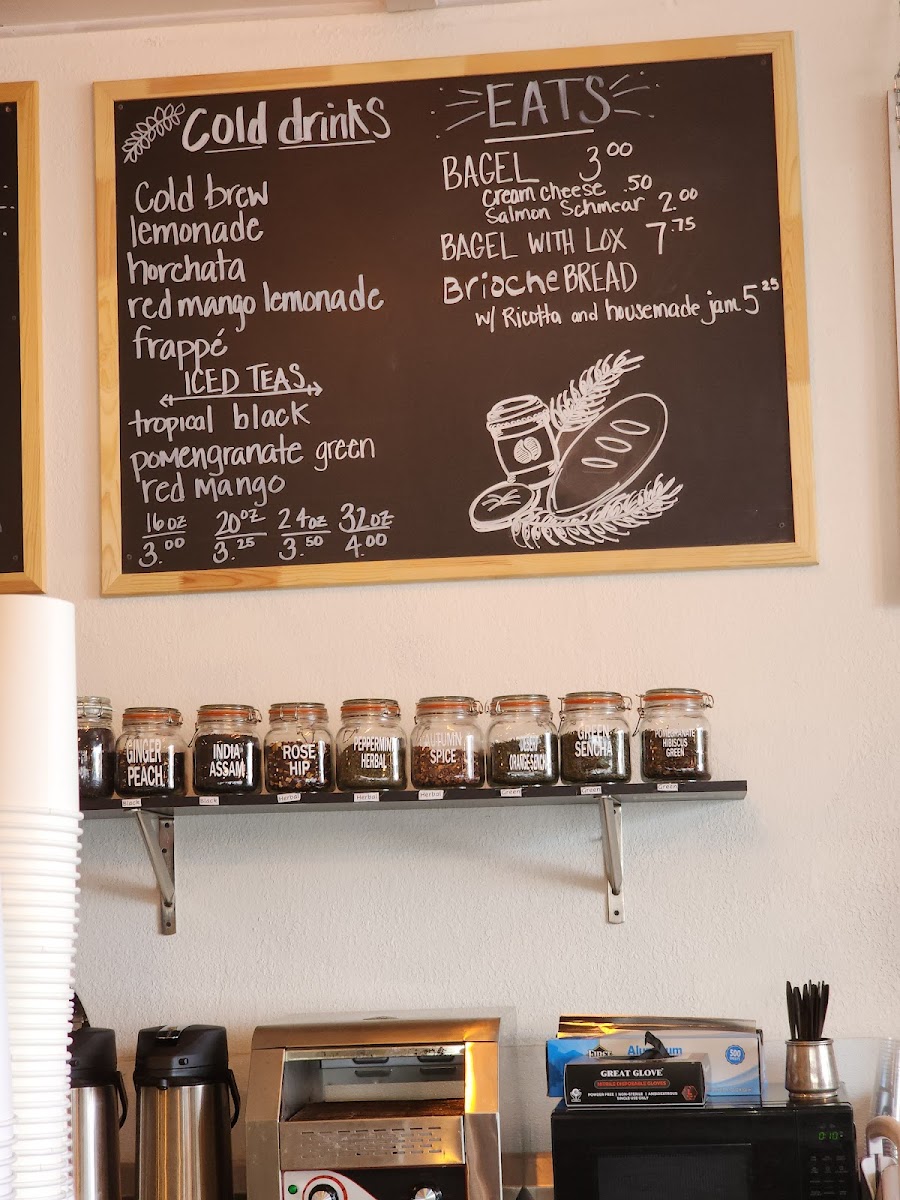 Cold drinks
Cold brew
lemonade
horchata
red mango lemonade
frappé
ICED TEAS
tropical black
pomengranate green
red mango
16oz 20oz 24oz 32oz
3.00 3.25 3.50 4.00
EATS
BAGEL 3.00
Cream cheese .50
Salmon Schmear 2.00
BAGEL WITH LOX 7.75
Brioche BREAD
w/ Ricotta and housemade jam 5.25
GINGER
PEACH
INDIA
ASSAM
ROSE
HIP
PEPPERMINT
HERBAL
AUTUMN
SPICE
ORANGE SENCHA
GREEN
SENCHA
POMEGRANATE
HIBISCUS
GREEN
Black
Black
Herbal
Herbal
Herbal
Green
Green
Green
Aluminum
500
GREAT GLOVE
NITRILE DISPOSABLE GLOVES
POWDER FREE | NON-STERILE | AMBIDEXTROUS
SINGLE USE ONLY